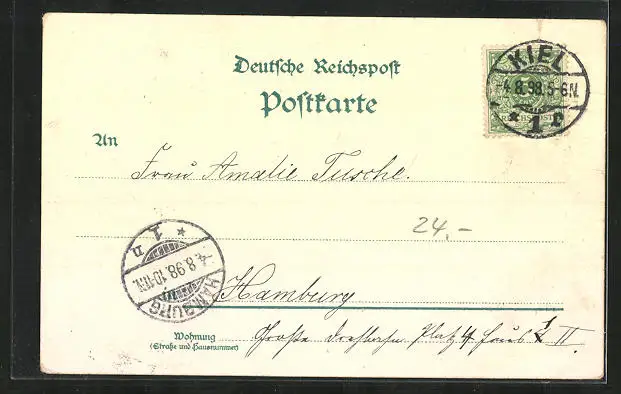 Deutsche Reichspost
Postkarte
KIEL
4.8.98.5-6N.
* 1 f
REICHSPOST
An
Frau Amalie Tusche.
24.-
* 1 d
4.8.98.10-11N.
HAMBURG
Hamburg
Wohnung
(Straße und Hausnummer)
Große Platz 4 II